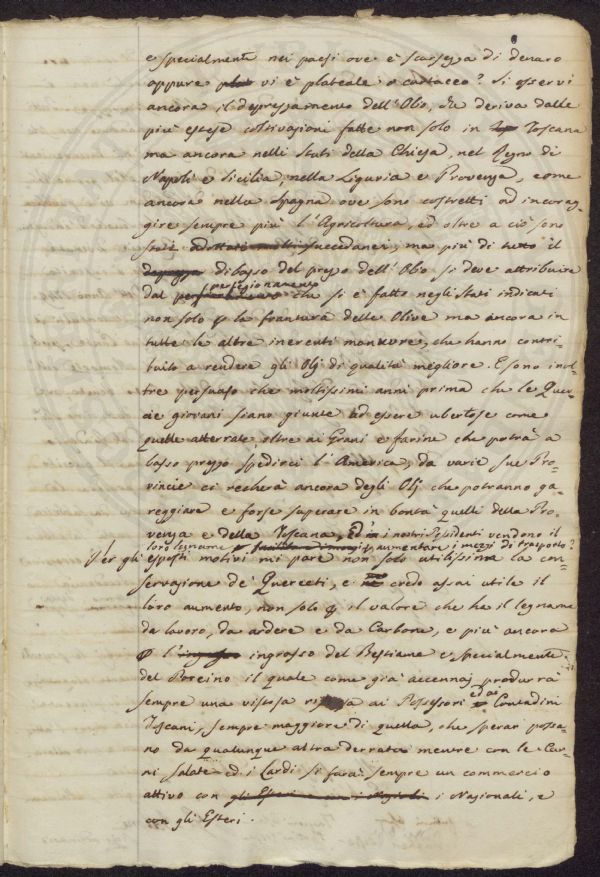 e specialmente nei paesi ove è scarsezza di denaro
oppure vi è plateale o cartaceo? Si osservi
ancora il deprezzamento dell'Olio, che deriva dalle
più estese coltivazioni fatte non solo in Toscana
ma ancora nelli Stati della Chiesa, nel Regno di
Napoli e Sicilia, nella Liguria e Provenza, e come
ancora nella Spagna ove sono costretti ad incorag=
gire sempre più l'Agricoltura, ed oltre a ciò sono
stati adottati molti succedanei, ma più di tutto il
dibasso del prezzo dell'Olio si deve attribuire
dal perfezionamento che si è fatto negli Stati indicati
non solo p la frantura delle Olive ma ancora in
tutte le altre inerenti manovre, che hanno contri=
buito a rendere gli Olj di qualità migliore. E sono inol=
tre persuaso che moltissimi anni prima che le Quer=
cie giovani siano giunte ad essere ubertose come
quelle atterrate, oltre ai Grani e farine che potrà a
basso prezzo spedirci l'America, da varie sue Pro=
vincie ci recherà ancora degli Olj che potranno ga=
reggiare e forse superare in bontà quelli della Pro=
venza e della Toscana, Ed i nostri Possidenti vendono il
loro legname p aumentare i mezzi di trasporto?
Per gli esposti motivi mi pare non solo utilissima la con=
servazione de' Querceti, e credo assai utile il
loro aumento, non solo p il valore che ha il legname
da lavoro, da ardere e da Carbone, e più ancora
p l' ingrasso del Bestiame e specialmente
del Porcino il quale come già accennaj produrrà
sempre una vistosa ai Possessori ed ai Contadini
Toscani, sempre maggiore di quella, che sperar possa=
no da qualunque altra derrata mentre con le Car=
ni salate ed i Lardi si farà sempre un commercio
attivo con gli Esteri e con i Nazionali, e
con gli Esteri.